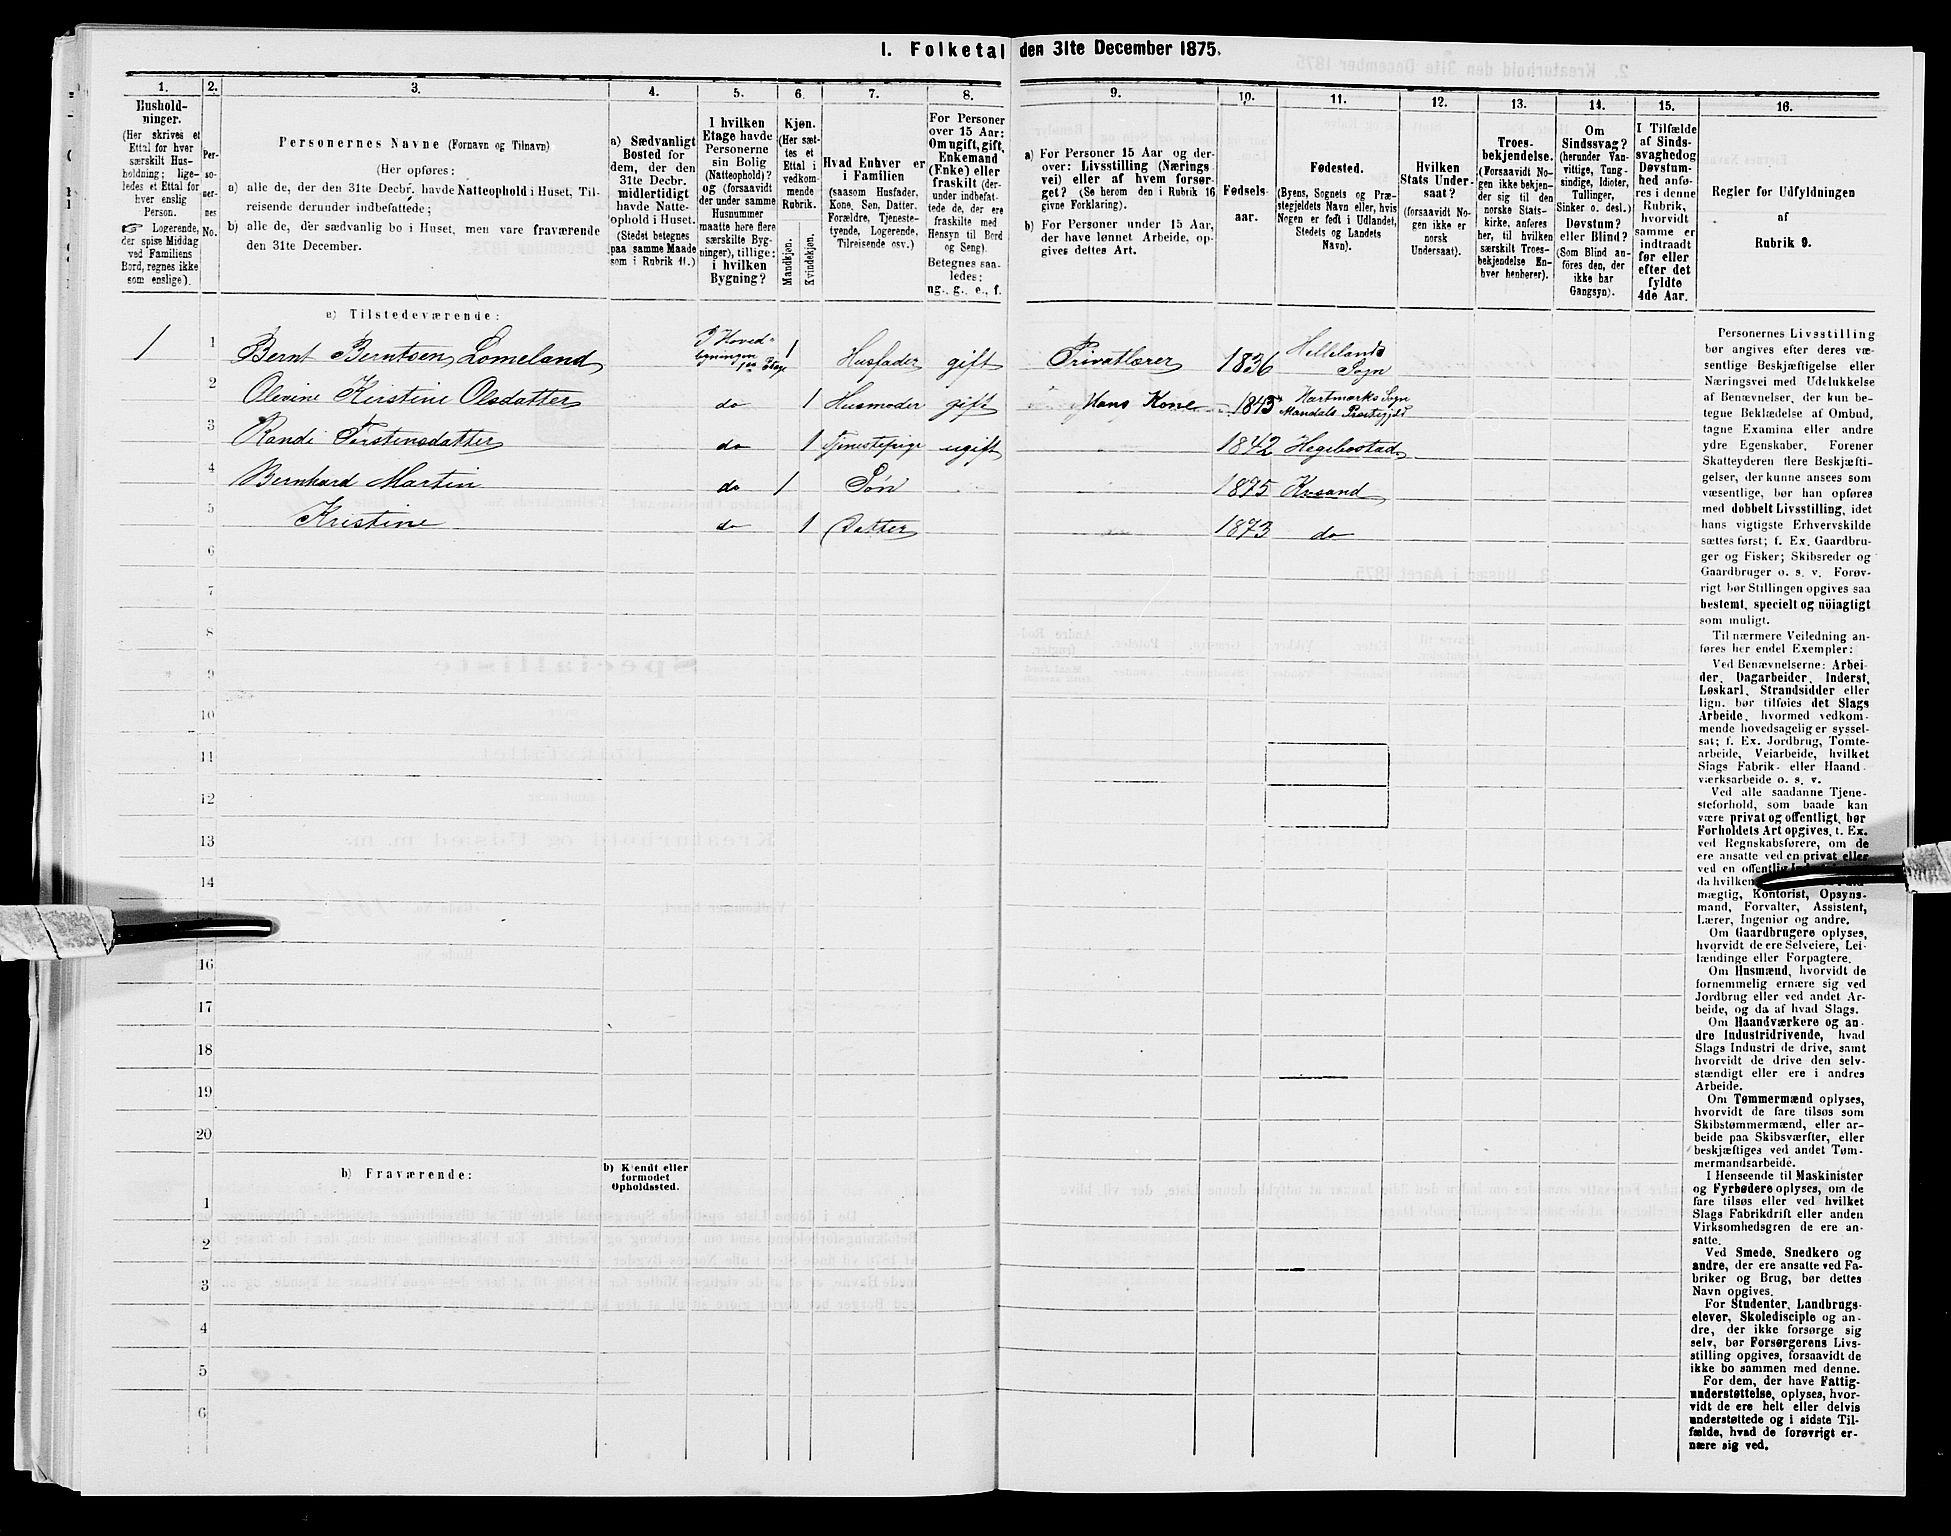 1. Folketal den 31te December 1875.
1.
Hushold-
ninger.
(Her skrives et
Ettal for hver
særskilt Hus-
holdning; lige-
ledes et Ettal for
hver enslig
Person.
☞ Logerende,
der spise Middag
ved Familiens
Bord, regnes ikke
som enslige).
2.
Per-
so-
ner-
nes
No.
3.
Personernes Navne (Fornavn og Tilnavn)
(Her opføres:
a) alle de, der den 31te Decbr. havde Natteophold i Huset, Til-
reisende derunder indbefattede;
b) alle de, der sædvanlig bo i Huset, men vare fraværende
den 31te December.
4.
a) Sædvanligt
Bosted for
dem, der den
31te Decbr.
midlertidigt
havde Natte-
ophold i Huset.
(Stedet betegnes
paa samme Maade
som i Rubrik 11.)
5.
I hvilken
Etage havde
Personerne
sin Bolig
(Natteophold)?
og (forsaavidt
der under samme
Husnummer
maatte høre flere
særskilte Byg-
ninger), tillige:
i hvilken
Bygning?
6.
Kjøn.
(Her sæt-
tes et
Ettal i
vedkom-
mende
Rubrik.
Mandkjøn.
Kvindekjøn.
7.
Hvad Enhver er
i Familien
(saasom Husfader,
Kone, Søn, Datter,
Forældre, Tjeneste-
tyende, Logerende,
Tilreisende osv.)
8.
For Personer
over 15 Aar:
Om ugift, gift,
Enkemand
(Enke) eller
fraskilt (der-
under indbefat-
tede de, der ere
fraskilte med
Hensyn til Bord
og Seng).
Betegnes saa-
ledes:
ug., g., e., f.
9.
a) For Personer 15 Aar og der-
over: Livsstilling (Nærings-
vei) eller af hvem forsør-
get? (Se herom den i Rubrik 16
givne Forklaring).
b) For Personer under 15 Aar,
der have lønnet Arbeide, op-
gives dettes Art.
10.
Fødsels-
aar.
11.
Fødested.
(Byens, Sognets og Præ-
stegjeldets Navn eller, hvis
Nogen er født i Udlandet,
Stedets og Landets
Navn).
12.
Hvilken
Stats Under-
saat?
(forsaavidt No-
gen ikke er
norsk
Undersaat).
13.
Troes-
bekjendelse.
(Forsaavidt No-
gen ikke bekjen-
der sig til den
norske Stats-
kirke, anføres
her, til hvilken
særskilt Troes-
bekjendelse En-
hver henhører).
14.
Om
Sindssvag?
(herunder Van-
vittige, Tung-
sindige, Idioter,
Tullinger,
Sinker o. desl.)
Døvstum?
eller Blind?
(Som Blind an-
føres den, der
ikke har
Gangsyn).
15.
I Tilfælde
af Sinds-
svaghed og
Døvstum-
hed anfø-
res i denne
Rubrik,
hvorvidt
samme er
indtraadt
før eller
efter det
fyldte
4de Aar.
16.
Regler for Udfyldningen
af
Rubrik 9.
a) Tilstedeværende:
1 1 Bernt Berntsen Lomeland I Hoved-
bygningen 1ste Etage 1 Husfader gift Privatlærer 1836 Hellelands
Sogn
2 Olevine Kirstine Olsdatter do 1 Husmoder gift Hans Kone 1845 Hartmarks Sogn
Mandals Prestegjeld
3 Randi Torstensdatter do 1 Tjenestepige ugift 1842 Hegebostad
4 Bernhard Martin do 1 Søn 1875 Krsand
5 Kristine do 1 Datter 1873 do
6
7
8
9
10
11
12
13
14
16
17
18
19
20
b) Fraværende:
b) Kjendt eller
formodet
Opholdssted.
1
2
3
4
5
6
Personernes Livsstilling
bør angives efter deres væ-
sentlige Beskjæftigelse eller
Næringsvei med Udelukkelse
af Benævnelser, der kun be-
tegne Beklædelse af Ombud,
tagne Examina eller andre
ydre Egenskaber. Forener
Skatteyderen flere Beskjæfti-
gelser, der kunne ansees som
væsentlige, bør han opføres
med dobbelt Livsstilling, idet
hans vigtigste Erhvervskilde
sættes først; f. Ex. Gaardbru-
ger og Fisker; Skibsreder og
Gaardbruger o. s. v. Forøv-
rigt bør Stillingen opgives saa
bestemt, specielt og nöiagtigt
som muligt.
Til nærmere Veiledning an-
føres her endel Exempler:
Ved Benævnelserne: Arbei-
der, Dagarbeider, Inderst,
Løskarl, Strandsidder eller
lign. bør tilføies det Slags
Arbeide, hvormed vedkom-
mende hovedsagelig er syssel-
sat; f. Ex. Jordbrug, Tomte-
arbeide, Veiarbeide, hvilket
Slags Fabrik- eller Haand-
værksarbeide o. s. v.
Ved alle saadanne Tjene-
steforhold, som baade kan
være privat og offentligt, bør
Forholdets Art opgives, t. Ex.
ved Regnskabsførere, om de
ere ansatte ved en privat eller
ved en offentlig
da hvilken
mægtig, Kontorist, Opsyns-
mand, Forvalter, Assistent,
Lærer, Ingeniør og andre.
Om Gaardbrugere oplyses,
hvorvidt de ere Selveiere, Lei-
lændinge eller Forpagtere.
Om Husmænd, hvorvidt de
fornemmelig ernære sig ved
Jordbrug eller ved andet Ar-
beide, og da af hvad Slags.
Om Haandværkere og an-
dre Industridrivende, hvad
Slags Industri de drive, samt
hvorvidt de drive den selv-
stændigt eller ere i andres
Arbeide.
Om Tømmermænd oplyses,
hvorvidt de fare tilsøs som
Skibstømmermænd, eller ar-
beide paa Skibsværfter, eller
beskjæftiges ved andet Tøm-
mermandsarbeide.
I Henseende til Maskinister
og Fyrbødere oplyses, om de
fare tilsøs eller ved hvilket
Slags Fabrikdrift eller anden
Virksomhedsgren de ere an-
satte.
Ved Smede, Snedkere og
andre, der ere ansatte ved Fa-
briker og Brug, bør dettes
Navn opgives.
For Studenter, Landbrugs-
elever, Skoledisciple og an-
dre, der ikke forsørge sig
selv, bør Forsørgerens Livs-
stilling opgives, forsaavidt de
ikke bo sammen med denne.
For dem, der have Fattig-
understøttelse, oplyses, hvor-
vidt de ere helt eller delvis
understøttede og i sidste Til-
fælde, hvad de forøvrigt er-
nære sig ved.